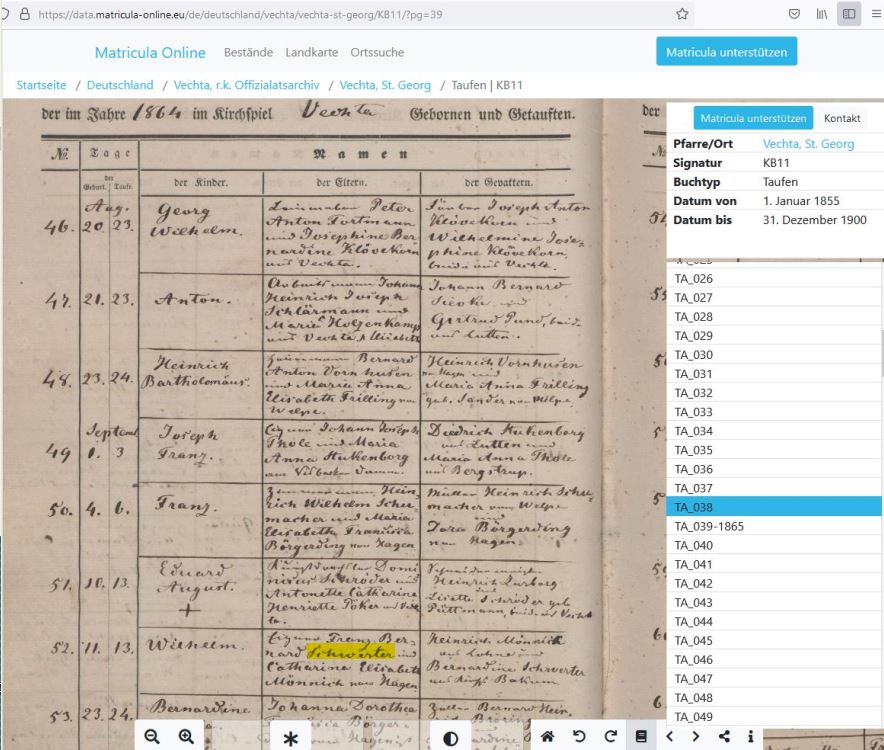 https://data.matricula-online.eu/de/deutschland/vechta/vechta-st-georg/KB11/?pg=39
Matricula Online
Bestände
Landkarte
Ortssuche
Matricula unterstützen
Startseite / Deutschland / Vechta, r.k. Offizialatsarchiv / Vechta, St. Georg / Taufen | KB11
der im Jahre 1864 im Kirchspiel Vechta Gebornen und Getauften.
No.
Tage
Namen
der Geburt.
der Taufe.
der Kinder.
der Eltern.
der Gevattern.
Aug.
46. 20. 23.
Georg
Wilhelm.
Peter
Anton Fortmann
und Josephine Ber
nardine Klövekorn
aus Vechta.
Joseph Anton
Klövekorn und
Wilhelmine Jose-
phine Klövekorn,
beide aus Vechta.
47. 21. 23.
Anton.
Johann
Heinrich Joseph
Schlärmann und
Maria Holzenkamp
aus Vechta
Johann Bernard
und
Gertrud Pund, beide
aus Lutten.
48. 23. 24.
Heinrich
Bartholomäus.
Bernard
Anton Vornhusen
und Maria Anna
Elisabeth Frilling von
Welpe.
Heinrich Vornhusen
von Hagen und
Maria Anna Frilling
geb. Sander von Welpe.
Septemb
49 1. 3
Joseph
Franz.
Johann Joseph
Thole und Maria
Anna Hukenborg
Diedrich Hukenborg
aus Lutten und
Maria Anna Thole
aus Bergstrup.
50. 4. 6.
Franz.
Hein
rich Wilhelm Schu-
macher und Maria
Elisabeth Francisca
Börgerding von Hagen
Müller Heinrich Schu
macher von Welpe
und
Dora Börgerding
von Hagen.
51. 10. 13.
Eduard
August.
Domi
nicus Schröder und
Antonette Catharine
Henriette Töker aus Vech
ta.
Heinrich
Lisette Schröder geb.
beide aus Vechta
52. 11. 13.
Wilhelm.
Eigner Franz Ber-
nard Schwerter und
Catharina Elisabeth
Mönnich von Hagen
Heinrich Mönnich
aus Lohne und
Bernardine Schwerter
aus Bakum
53. 23. 24.
Bernardine
Johanna Dorothea
Börger-
Zeller Bernard Hein-
rich
der
Matricula unterstützen
Kontakt
Pfarre/Ort Vechta, St. Georg
Signatur KB11
Buchtyp Taufen
Datum von 1. Januar 1855
Datum bis 31. Dezember 1900
TA_025
TA_026
TA_027
TA_028
TA_029
TA_030
TA_031
TA_032
TA_033
TA_034
TA_035
TA_036
TA_037
TA_038
TA_039-1865
TA_040
TA_041
TA_042
TA_043
TA_044
TA_045
TA_046
TA_047
TA_048
TA_049